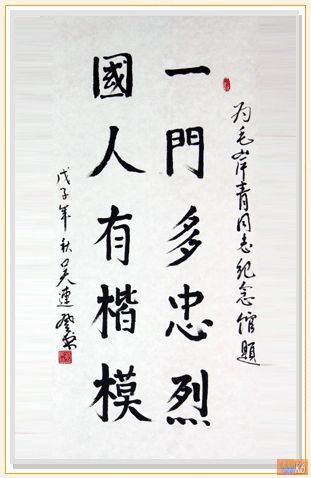 为毛岸青同志纪念馆题
一門多忠烈
國人有楷模
戊子年秋吴連登
K6